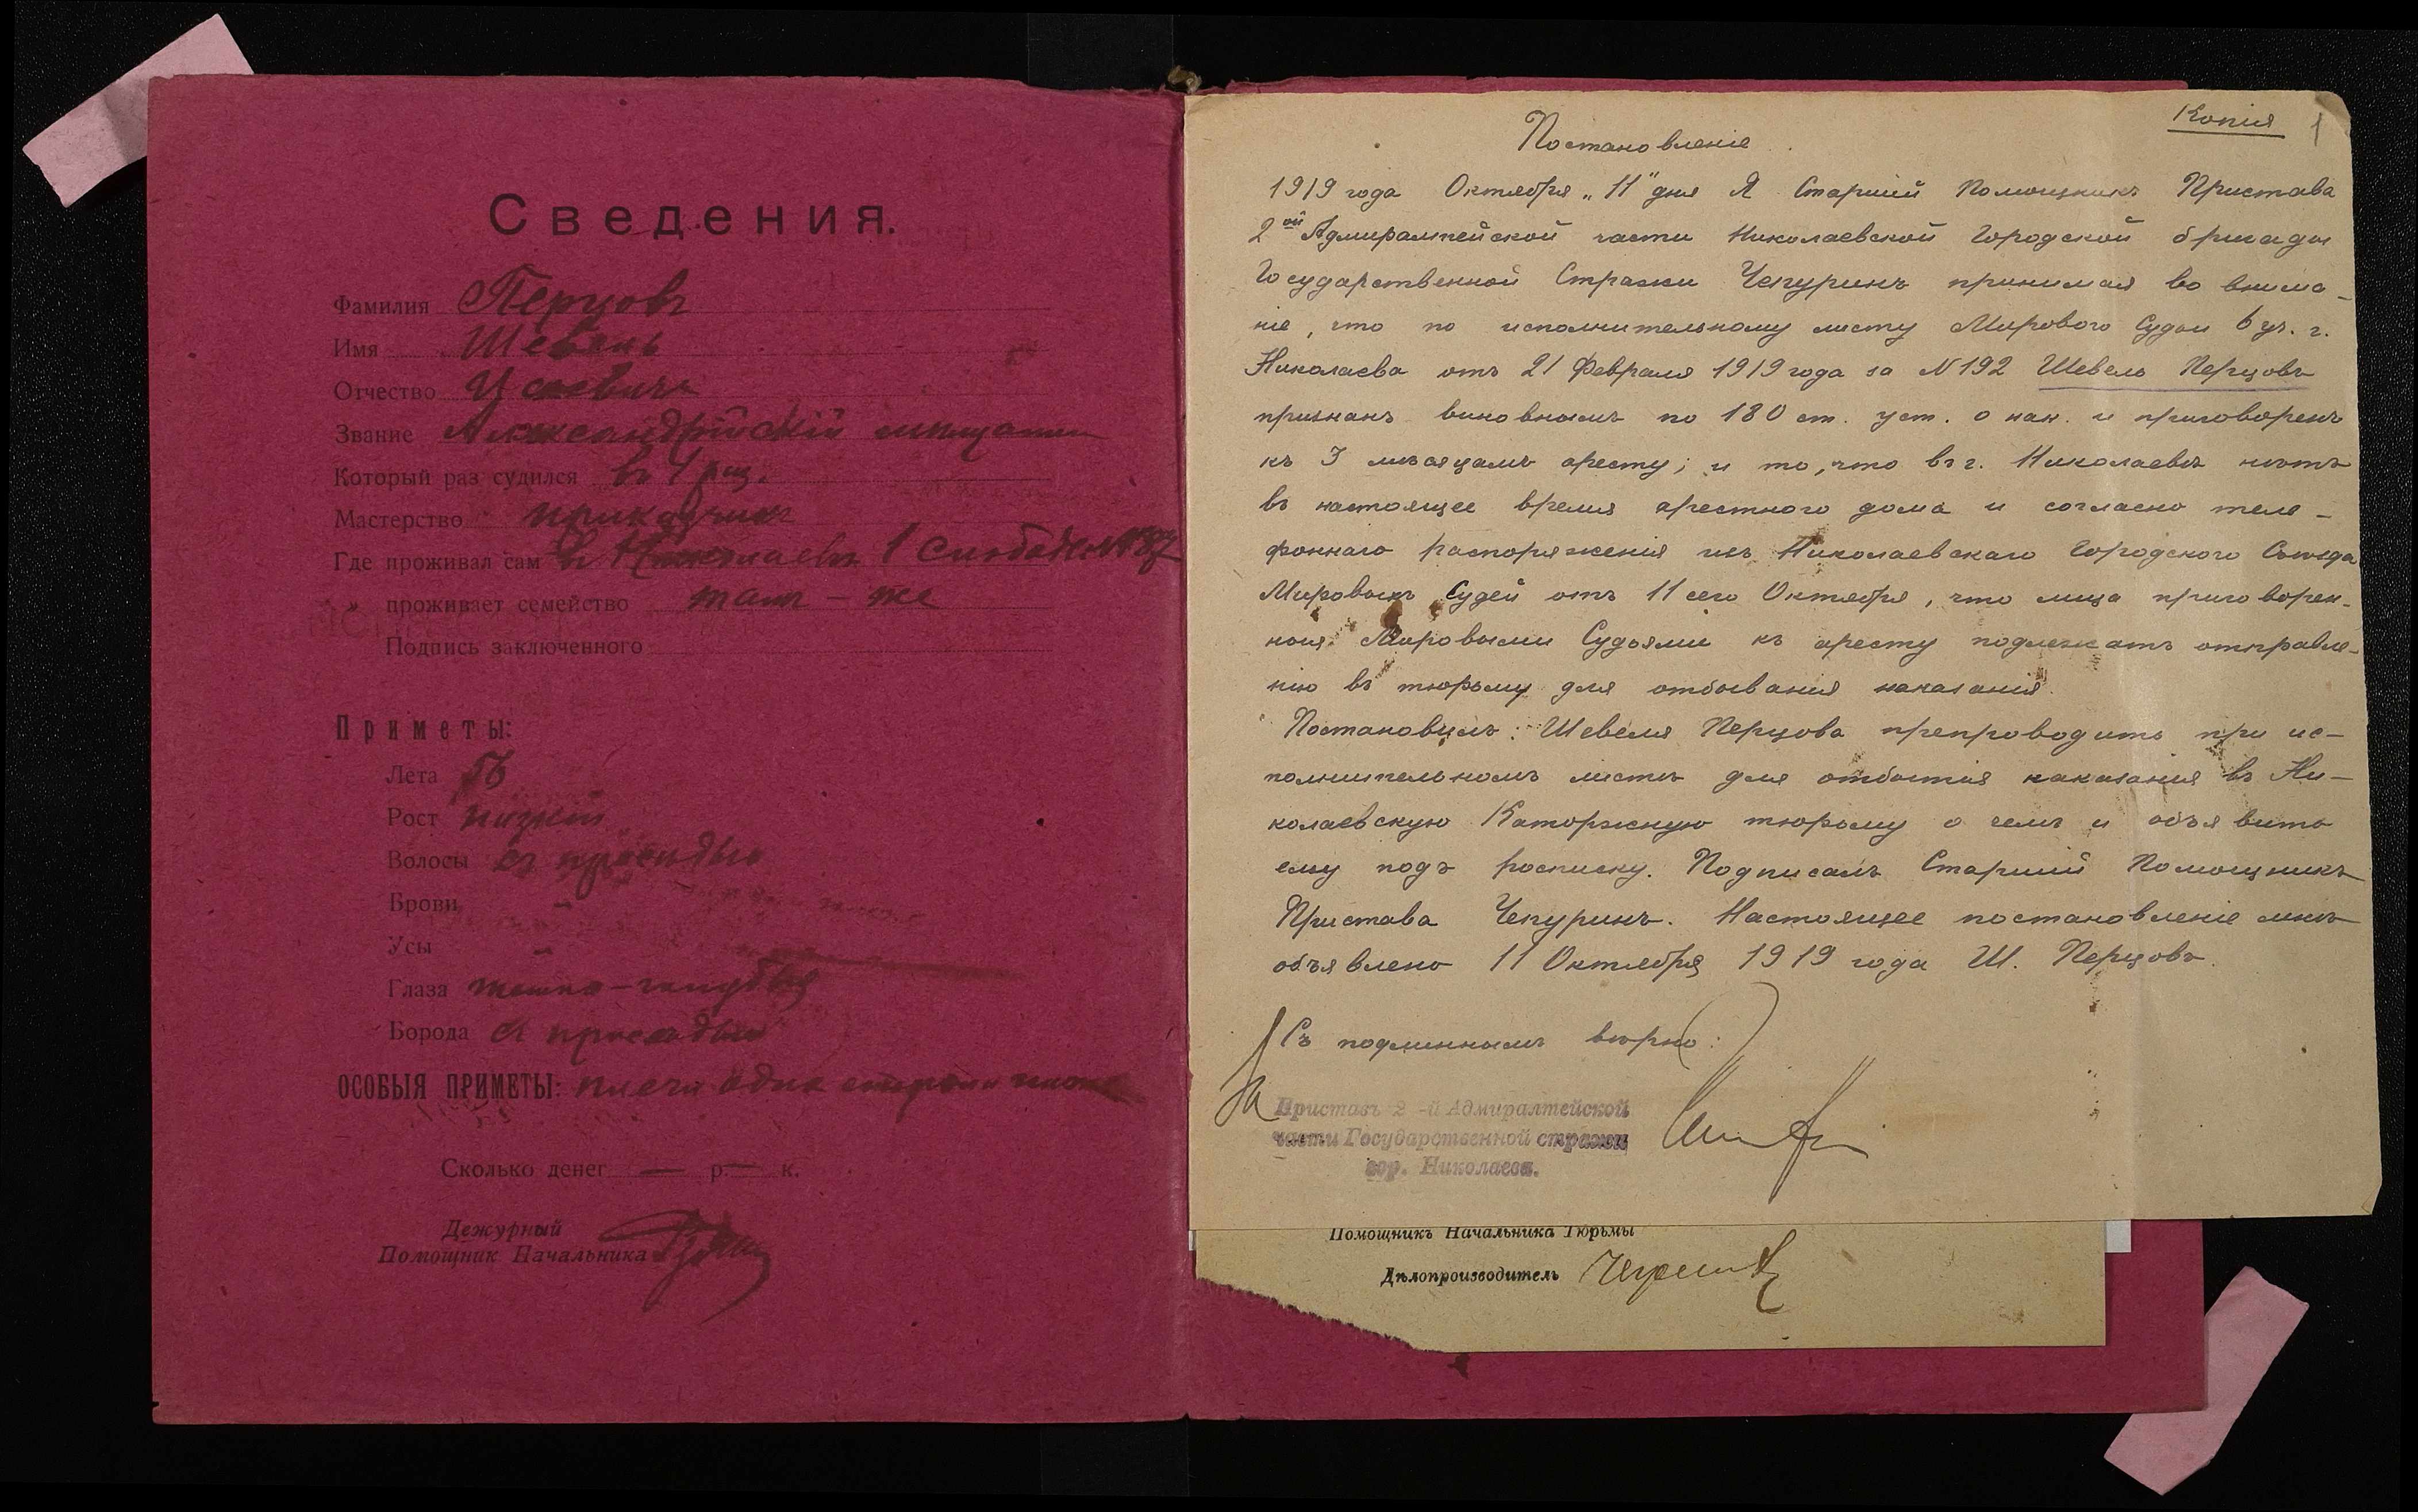 Сведения.
Фамилия Перцовъ
Имя Шевель
Отчество
Звание Александрійскій мещанин
Который раз судился въ 1 раз.
Мастерство приказчик
Где проживал сам в Николаевѣ 1 Слободск № 87
„ проживает семейство там – же
Подпись заключенного
Приметы:
Лета
Рост низкій
Волосы съ просѣдью
Брови –
Усы –
Глаза темно – голубые
Борода с просѣдью
ОСОБЫЯ ПРИМЕТЫ: плечи одна сторона ниже
Сколько денег — р. — к.
Дежурный
Помощник Начальника
Копія
1
Постановленіе
1919 года Октября „11" дня Я Старшій Помощникъ Пристава
2ой Адмиралтейской части Николаевской Городской бригады
Государственной Стражи Чепуринъ принимая во внима-
ніе, что по исполнительному листу Мирового Судьи 6 уч. г.
Николаева отъ 21 Февраля 1919 года за N 192 Шевель Перцовъ
признанъ виновнымъ по 180 ст. уст. о нак. и приговоренъ
къ 3 мѣсяцамъ аресту; и то, что въ г. Николаевѣ нѣтъ
въ настоящее время арестного дома и согласно теле-
фоннаго распоряженія изъ Николаевскаго Городского Съѣзда
Мировыхъ Судей отъ 11 сего Октября, что лица приговорен-
ныя Мировыми Судьями къ аресту подлежатъ отправле-
нію въ тюрьму для отбыванія наказанія.
Постановилъ: Шевеля Перцова препроводить при ис-
полнительномъ листѣ для отбытія наказанія въ Ни-
колаевскую Каторжную тюрьму о чемъ и объявить
ему подъ росписку. Подписалъ Старшій Помощникъ
Пристава Чепуринъ. Настоящее постановленіе мнѣ
объявлено 11 Октября 1919 года Ш. Перцовъ.
Съ подлиннымъ вѣрно:
За Приставъ 2-й Адмиралтейской
части Государственной стражи
гор. Николаева.
Помощникъ Начальника Тюрьмы
Дѣлопроизводитель